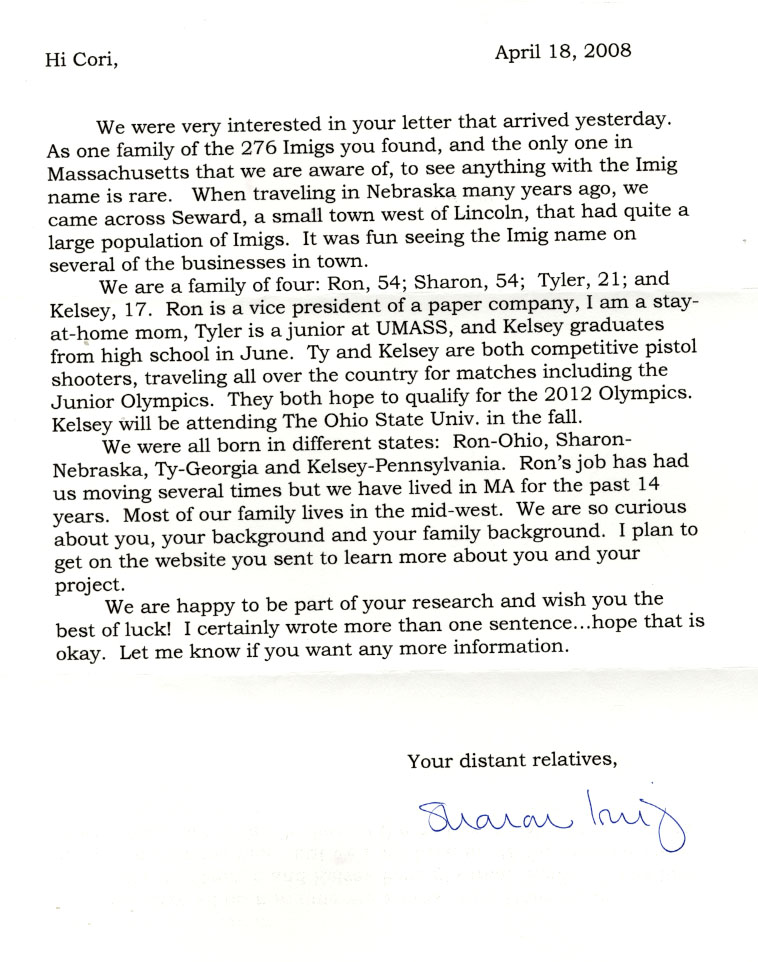 Hi Cori,
April 18, 2008
We were very interested in your letter that arrived yesterday.
As one family of the 276 Imigs you found, and the only one in
Massachusetts that we are aware of, to see anything with the Imig
name is rare. When traveling in Nebraska many years ago, we
came across Seward, a small town west of Lincoln, that had quite a
large population of Imigs. It was fun seeing the Imig name on
several of the businesses in town.
We are a family of four: Ron, 54; Sharon, 54; Tyler, 21; and
Kelsey, 17. Ron is a vice president of a paper company, I am a stay-
at-home mom, Tyler is a junior at UMASS, and Kelsey graduates
from high school in June. Ty and Kelsey are both competitive pistol
shooters, traveling all over the country for matches including the
Junior Olympics. They both hope to qualify for the 2012 Olympics.
Kelsey will be attending The Ohio State Univ. in the fall.
We were all born in different states: Ron-Ohio, Sharon-
Nebraska, Ty-Georgia and Kelsey-Pennsylvania. Ron's job has had
us moving several times but we have lived in MA for the past 14
years. Most of our family lives in the mid-west. We are so curious
about you, your background and your family background. I plan to
get on the website you sent to learn more about you and your
project.
We are happy to be part of your research and wish you the
best of luck! I certainly wrote more than one sentence...hope that is
okay. Let me know if you want any more information.
Your distant relatives,
Sharon Imig